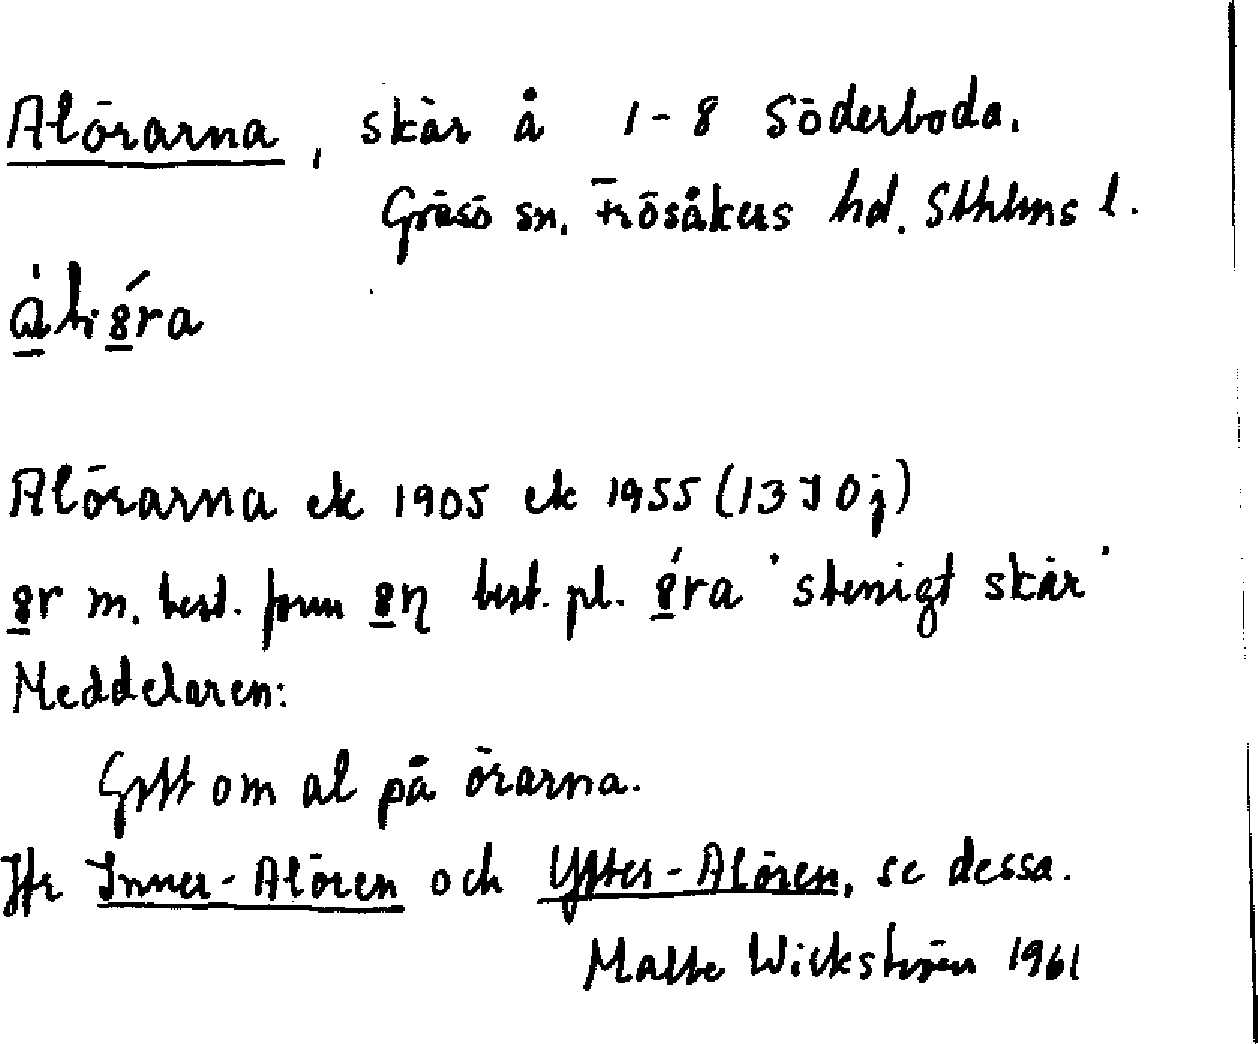 Alörarna, skär å 1-8 Söderboda.
Gräsö sn. Frösåkers hd. Sthlms l.
Alörarna ek 1905 ek 1955 (13 I 0 j)
m. best. form best. pl. 'stenigt skär'
Meddelaren:
Gott om al på örarna.
Jfr Inner-Alören och Ytter-Alören, se dessa.
Malte Wickström 1961